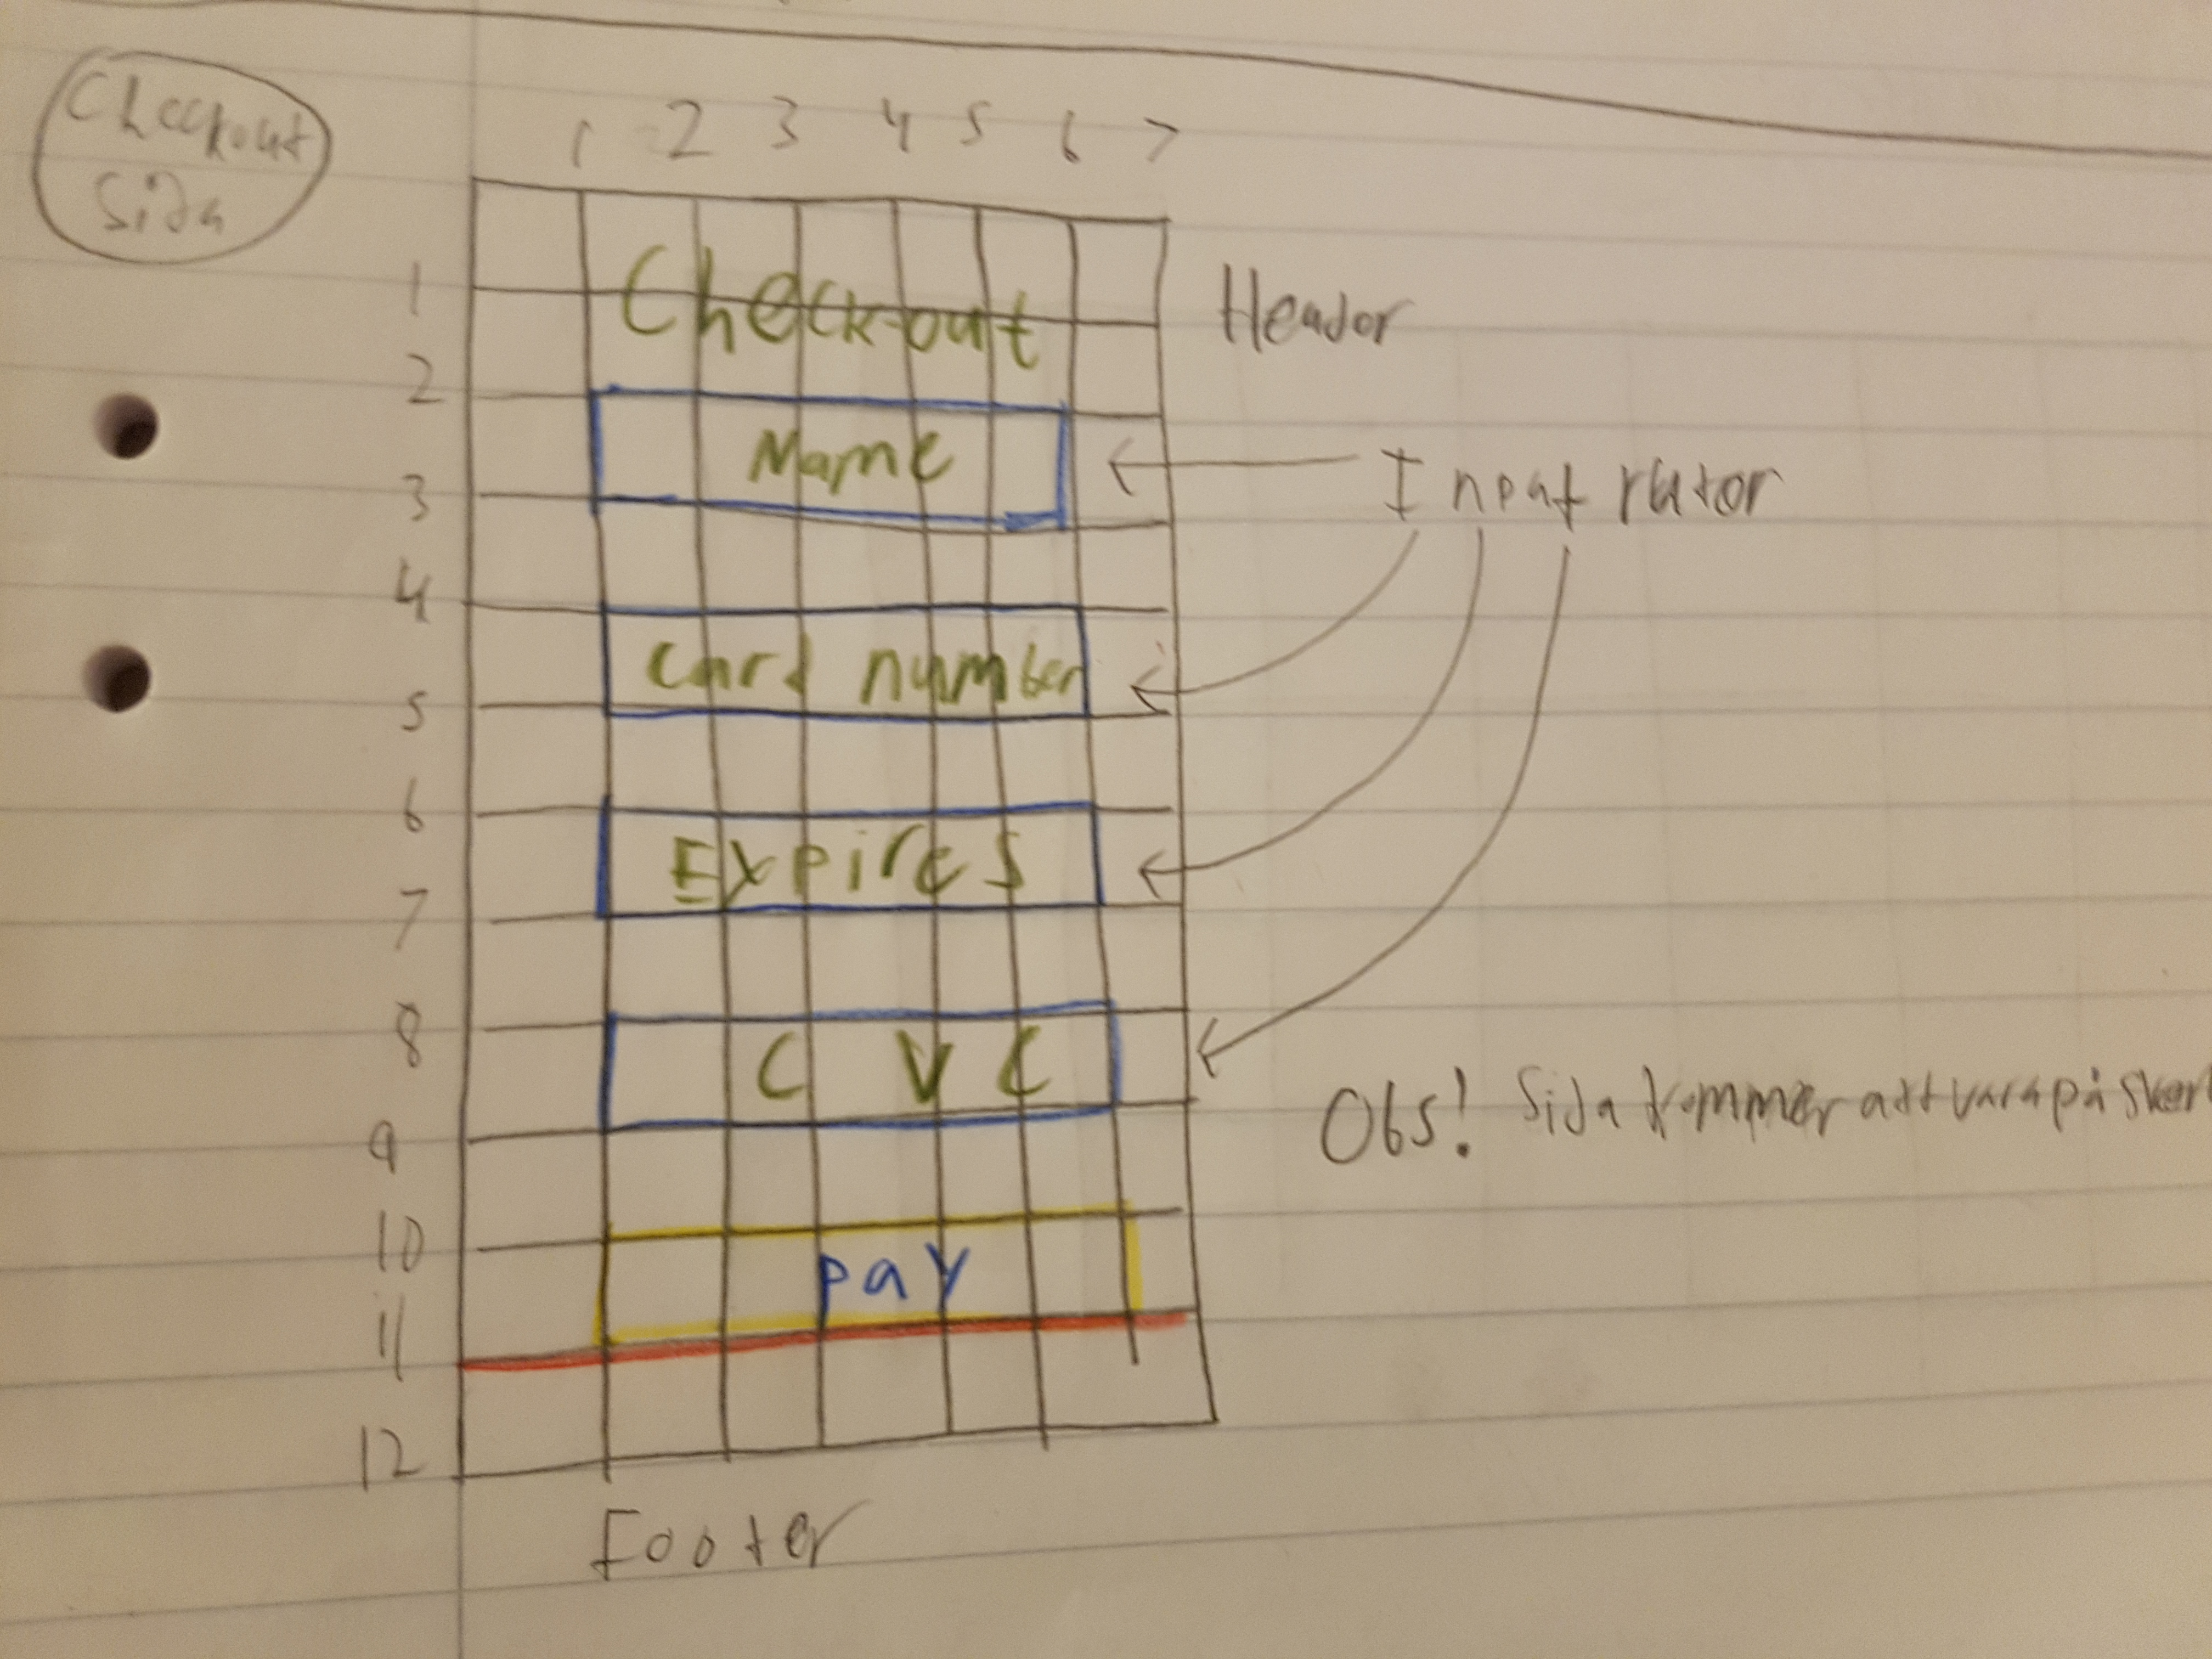 Checkout
Sida
1 2 3 4 5 6 7
1
2
3
4
5
6
7
8
9
10
11
12
Check-out
Header
Name
Input rutor
Card number
Expires
CVC
Obs! Sida kommer att vara på
Pay
Footer